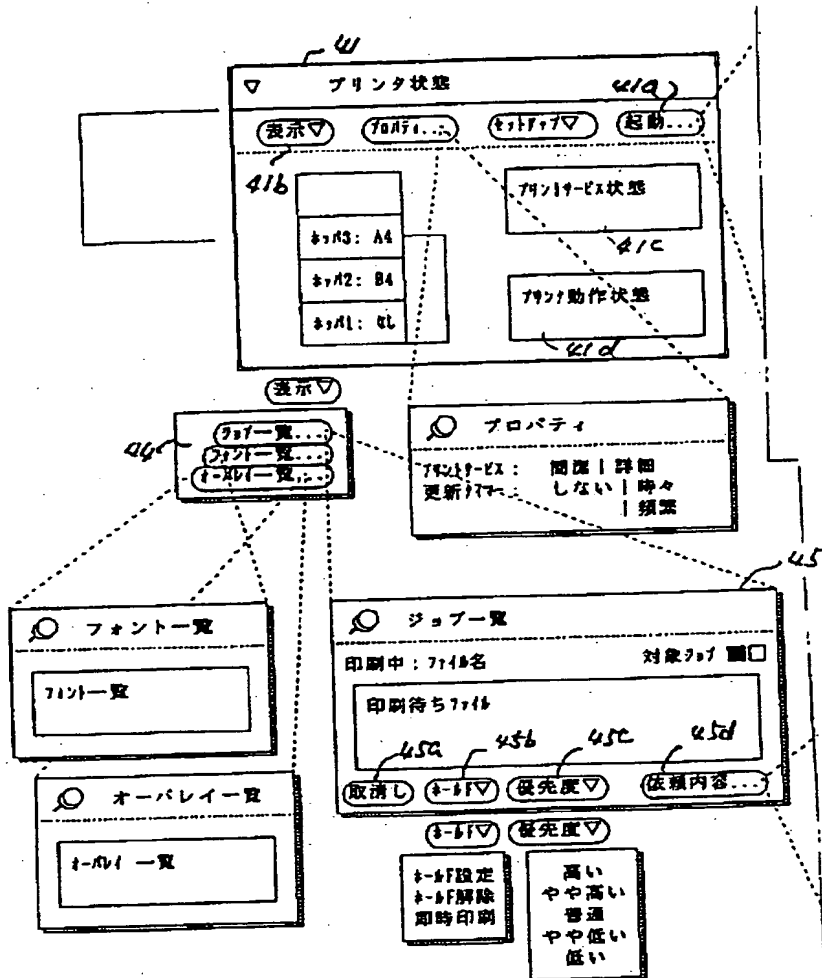 41
▽ プリンタ状態
41a
表示▽ プロパティ... セットアップ▽ 起動...
41b
プリントサービス状態
41c
ホッパ3: A4
ホッパ2: B4
ホッパ1:
プリンタ動作状態
41d
表示▽
44
ジョブ一覧...
フォント一覧...
オーバレイ一覧...
プロパティ
プリントサービス: 簡潔 | 詳細
更新タイマー: しない | 時々
| 頻繁
45
フォント一覧
フォント一覧
オーバレイ一覧
オーバレイ 一覧
ジョブ一覧
印刷中:ファイル名 対象ジョブ
印刷待ちファイル
45a 45b 45c 45d
取消し ホールド▽ 優先度▽ 依頼内容...
ホールド▽ 優先度▽
ホールド設定
ホールド解除
即時印刷
高い
やや高い
普通
やや低い
低い